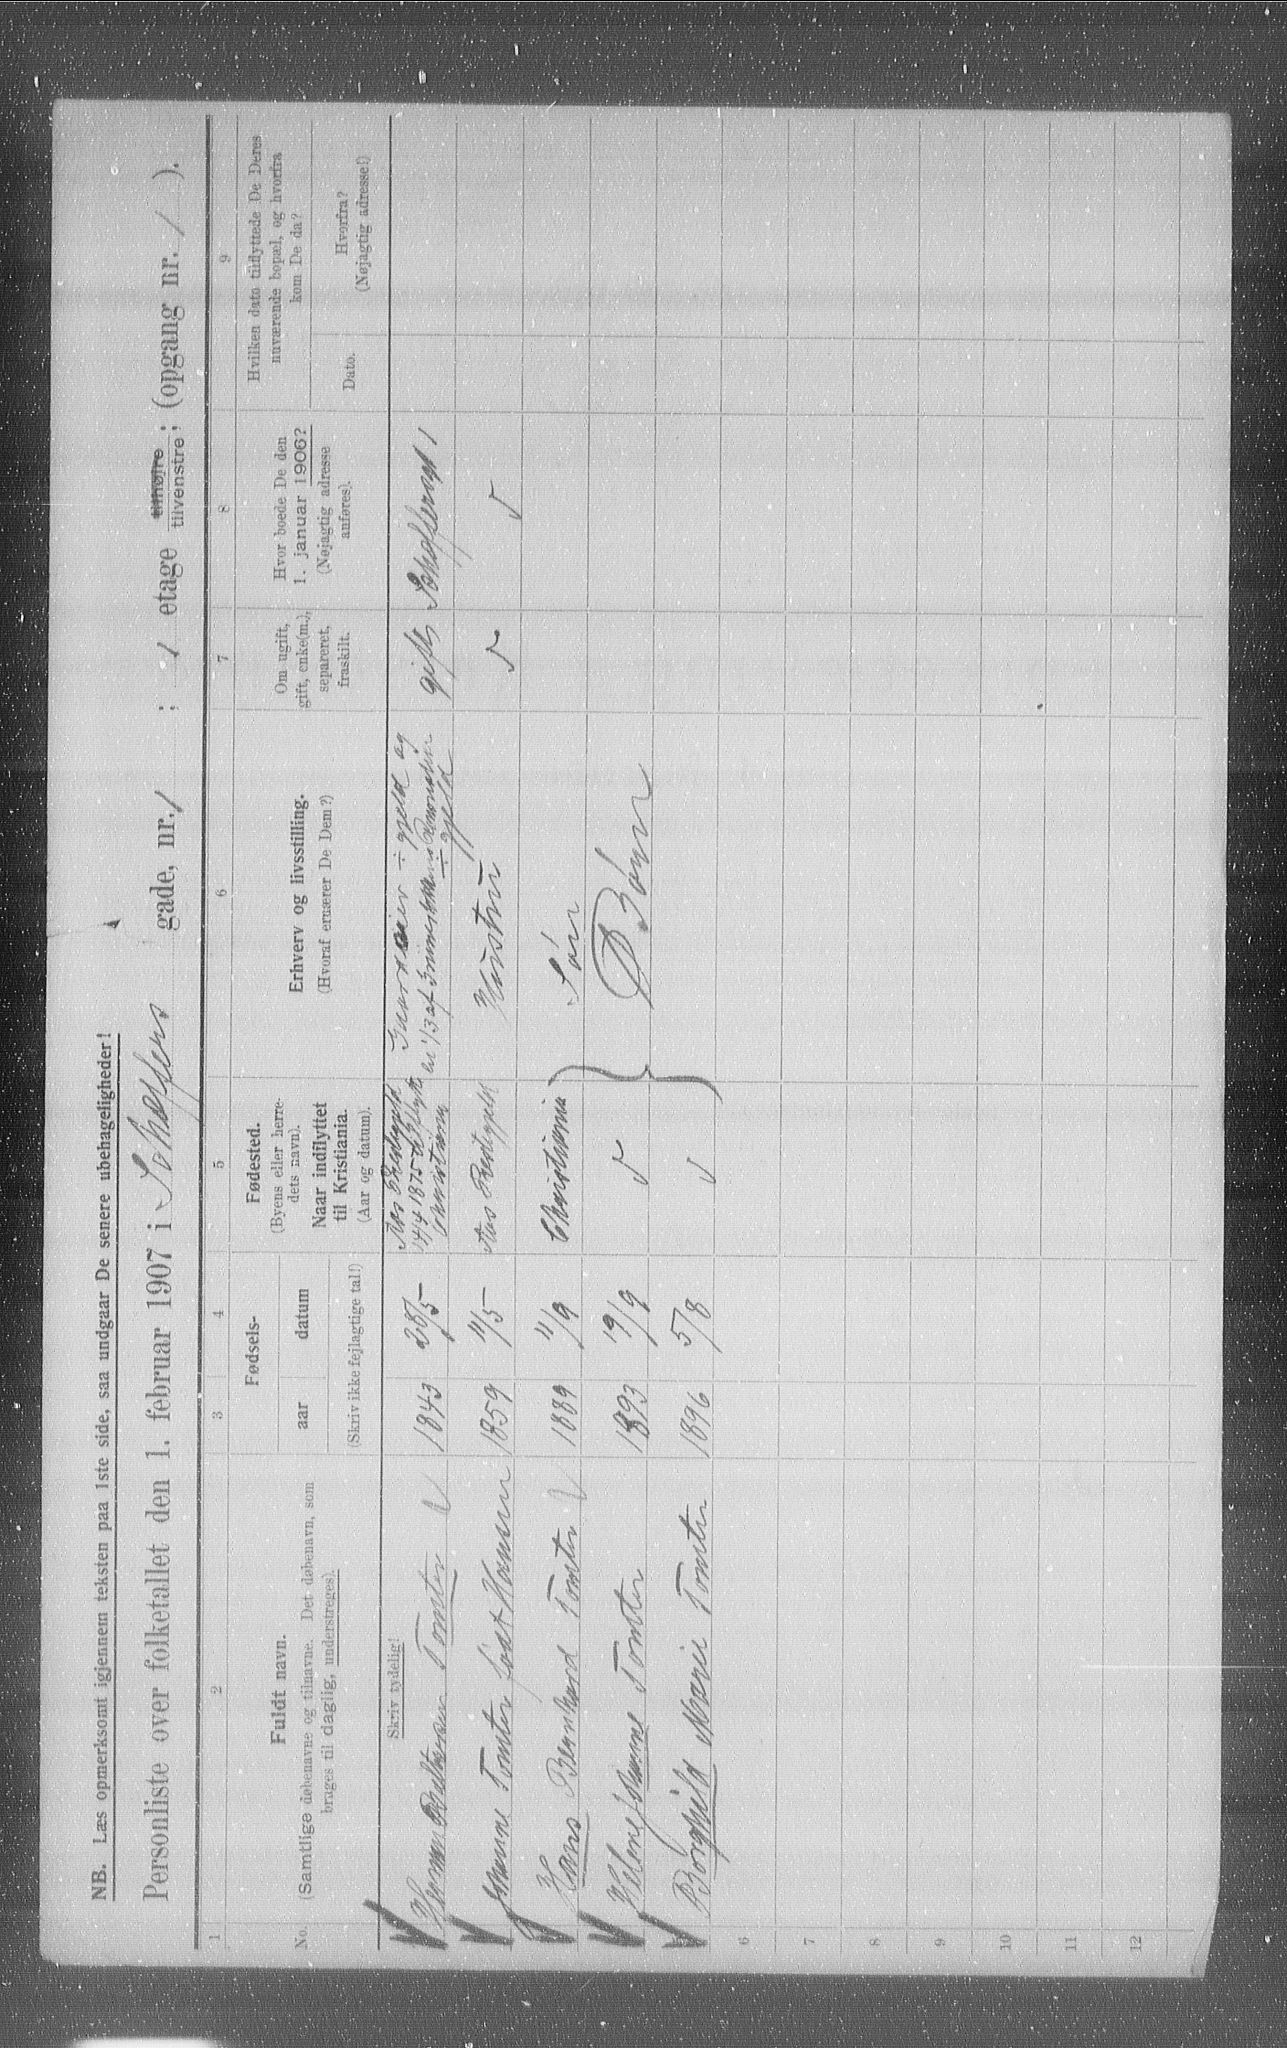 NB. Læs opmerksomt igjennem teksten paa 1ste side, saa undgaar De senere ubehageligheder!
Personliste over folketallet den 1. februar 1907 i Schæffers gade, nr. 1 ; 1 etage tilhøjre tilvenstre ; (opgang nr. / ).
1 2 3 4 5 6 7 8 9
No.
Fuldt navn.
(Samtlige døbenavne og tilnavne. Det døbenavn, som
bruges til daglig, understreges).
Fødsels-
aar datum
(Skriv ikke fejlagtige tal!)
Fødested.
(Byens eller herre-
dets navn).
Naar indflyttet
til Kristiania.
(Aar og datum).
Erhverv og livsstilling.
(Hvoraf ernærer De Dem?)
Om ugift,
gift, enke(m.),
separeret,
fraskilt.
Hvor boede De den
1. januar 1906?
(Nøjagtig adresse
anføres).
Hvilken dato tilflyttede De Deres
nuværende bopæl, og hvorfra
kom De da?
Dato.
Hvorfra?
(Nøjagtig adresse!)
Skriv tydelig!
Tomter 1843 28/5 Aas 14/4 1875 Gaardeier ÷ gjeld og en 1/3 af ÷ gjeld gift Schæffersgd 1
Johanne Tomter født Hansen 1859 11/5 Aas Præstegjeld Hustru
Hans Bernhard Tomter 1889 11/9 Christiania Søn
Helene Johanne Tomter 1893 19/9 Børn
Borghild Marie Tomter 1896 5/8
6
7
8
9
10
11
12